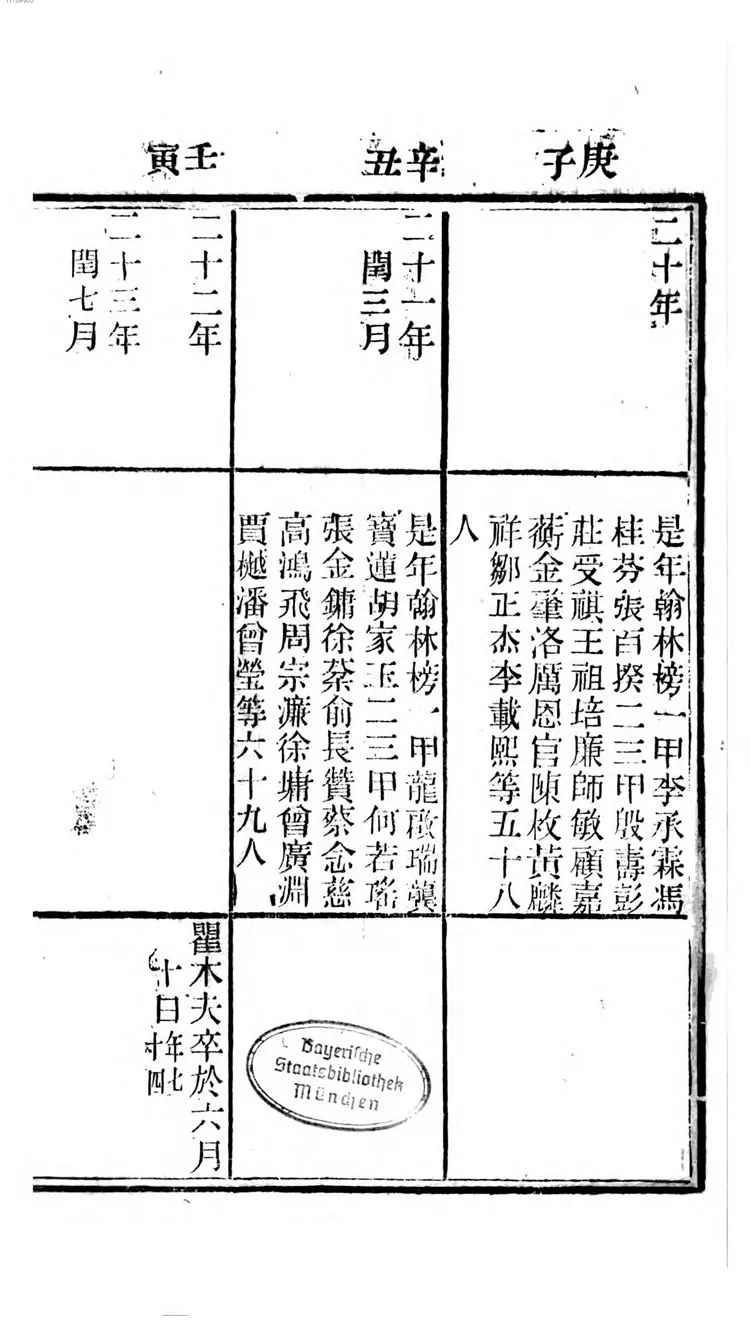 庚子
二十年
是年翰林榜一甲李承霖馮
桂芬張百揆二三甲殷壽彭
莊受祺王祖培廉師敏顧嘉
蘅金肇洛厲恩官陳枚黃麟
祥鄒正杰李載熙等五十八
人
辛丑
二十一年
閏三月
是年翰林榜一甲龍啟瑞龔
寶蓮胡家玉二三甲何若瑤
張金鏞徐棻俞長贊蔡念慈
高鴻飛周宗濂徐墉曾廣淵
賈樾潘曾瑩等六十九人
Bayerische
Staatsbibliothek
München
壬寅
二十二年
瞿木夫卒於六月
十日年七
十四
二十三年
閏七月